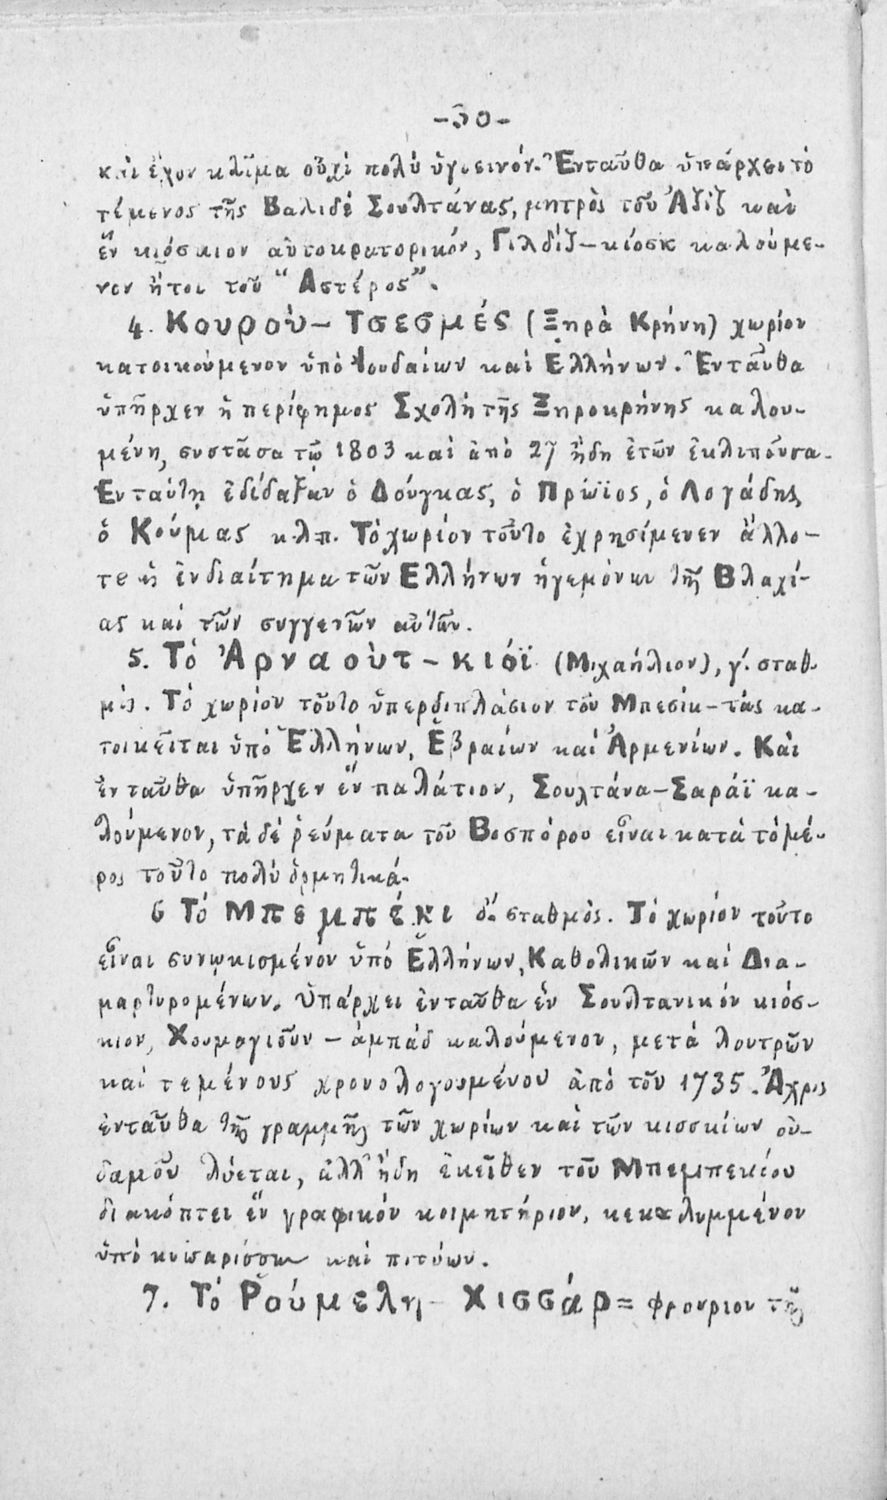 -30-
καὶ ἔχον κλῖμα οὐχὶ πολὺ ὑγιεινόν. Ἐνταῦθα ὑπάρχει τὸ
τέμενος τῆς Βαλιδὲ Σουλτάνας, μητρὸς τοῦ Ἀζὶζ καὶ
ἓν κιόσκιον αὐτοκρατορικόν, Γιλδὶζ-κίοσκ καλούμε-
νον ἤτοι τοῦ "Ἀστέρος".
4. Κουροὺ-Τσεσμές (Ξηρὰ Κρήνη) χωρίον
κατοικούμενον ὑπὸ Ἰουδαίων καὶ Ἑλλήνων. Ἐνταῦθα
ὑπῆρχεν ἡ περίφημος Σχολὴ τῆς Ξηροκρήνης καλου-
μένη, συστᾶσα τῷ 1803 καὶ ἀπὸ 27 ἤδη ἐτῶν ἐκλιποῦσα.
Ἐνταύτῃ ἐδίδαξαν ὁ Δούγκας, ὁ Πρώϊος, ὁ Λογάδης,
ὁ Κούμας κ.λ.π. Τὸ χωρίον τοῦτο ἐχρησίμενεν ἄλλο-
τε ἡ ἐνδιαίτημα τῶν Ἑλλήνων ἡγεμόνων τῆς Βλαχί-
ας καὶ τῶν συγγενῶν αὐτῶν.
5. Τὸ Ἀρναοὺτ-κιόϊ (Μιχαήλιον), γ΄. σταθ-
μός. Τὸ χωρίον τοῦτο ὑπερδιπλάσιον τοῦ Μπεσίκ-τὰς κα-
τοικεῖται ὑπὸ Ἑλλήνων, Ἑβραίων καὶ Ἀρμενίων. Καὶ
ἐνταῦθα ὑπῆρχεν ἓν παλάτιον, Σουλτάνα-Σαράϊ κα-
λούμενον, τὰ δὲ ῥεύματα τοῦ Βοσπόρου εἶναι κατὰ τὸ μέ-
ρος τοῦτο πολὺ ὁρμητικά.
6 Τὸ Μπεμπέκι δ΄. σταθμὸς. Τὸ χωρίον τοῦτο
εἶναι συνῳκισμένον ὑπὸ Ἑλλήνων, Καθολικῶν καὶ Δια-
μαρτυρομένων. Ὑπάρχει ἐνταῦθα ἓν Σουλτανικόν κιόσ-
κιον, Χουμαγιοῦν-ἀμπάδ καλούμενον, μετὰ λουτρῶν
καὶ τεμένους χρονολογουμένου ἀπὸ τοῦ 1735. Ἄχρις
ἐνταῦθα τῆς γραμμῆς τῶν χωρίων καὶ τῶν κιοσκίων οὐ-
δαμοῦ λύεται, ἀλλ' ἤδη ἐκεῖθεν τοῦ Μπεμπεκίου
διακόπτει ἓν γραφικόν κοιμητήριον, κεκαλυμμένον
ὑπὸ κυπαρίσσων καὶ πιτύων.
7. Τὸ Ῥούμελη-Χισσάρ = φρούριον τῆς